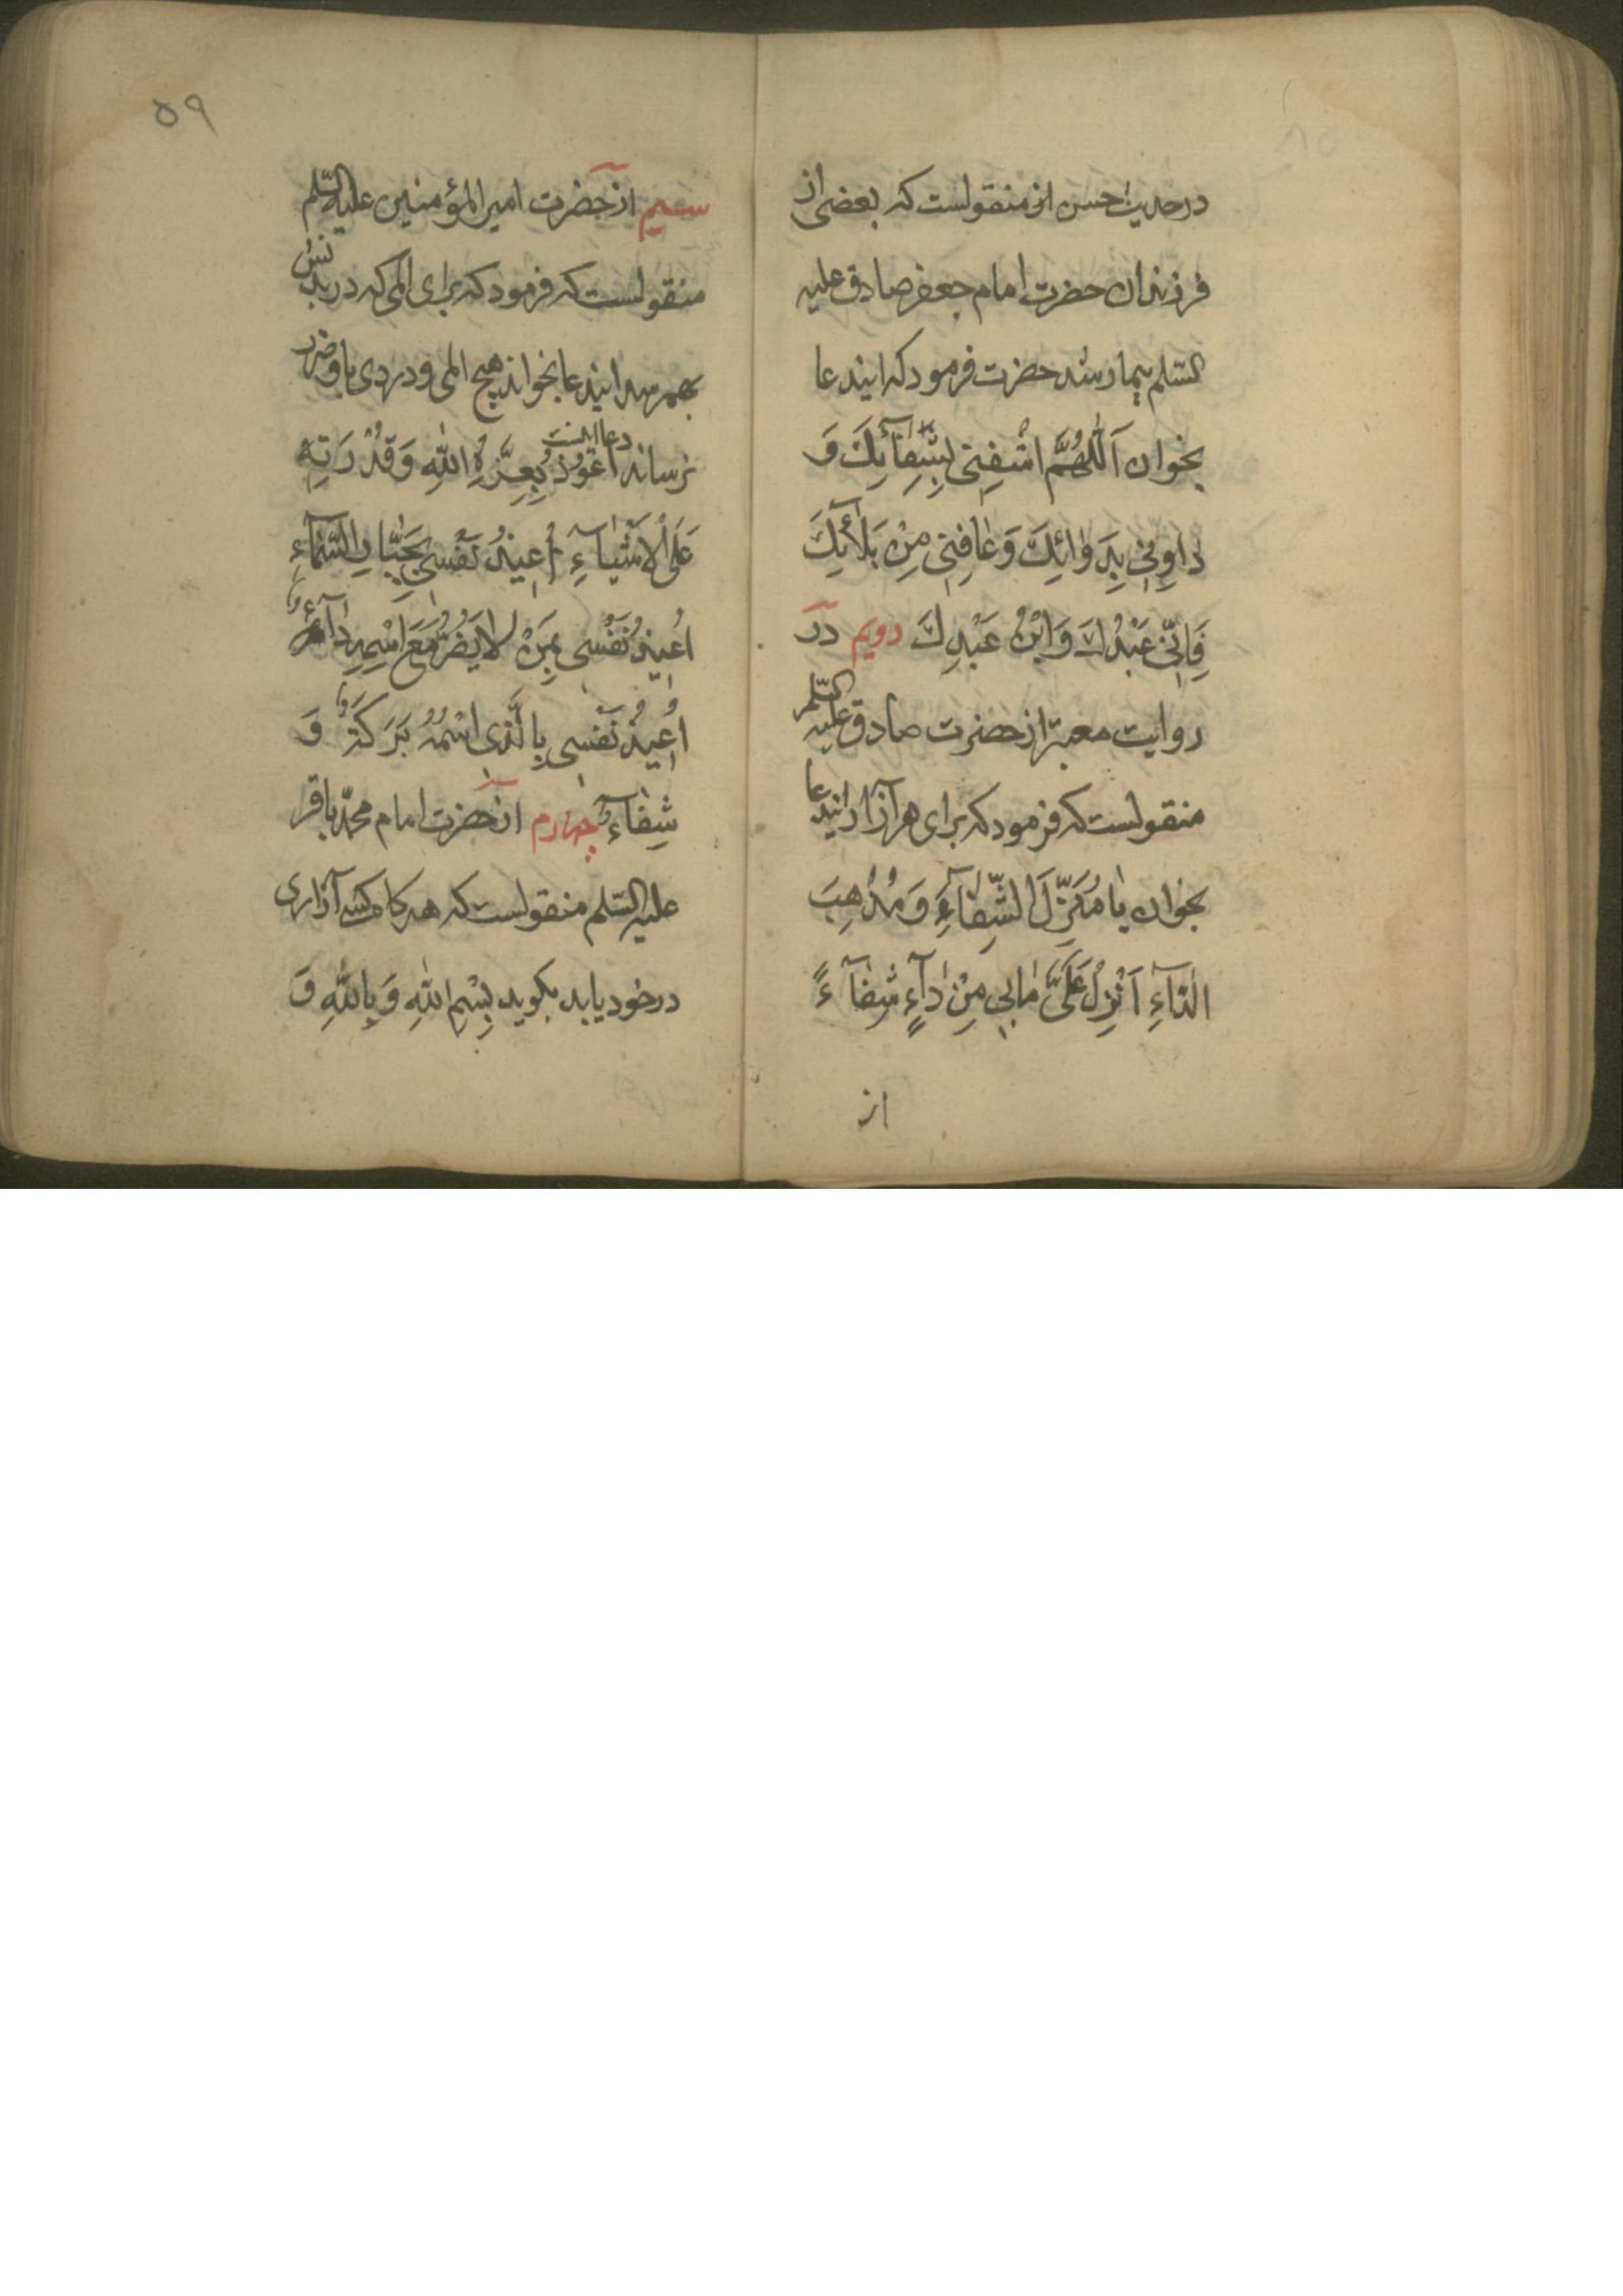 در حدیث حسن از منقولست که بعضی از
فرزندان حضرت امام جعفر صادق علیه
السّلم بیمار شد حضرت فرمود که ایندعا
بخوان اَللّٰهُمَّ اشْفِنِی بِشِفٰآئِكَ وَ
دٰاوِنِی بِدَوٰائِكَ وَ عٰافِنِی مِنْ بَلٰآئِكَ
فَاِنّی عَبْدُكَ وَ ابْنُ عَبْدِكَ دویم در
روایت معتبر از حضرت صادق علیه السّلم
منقولست که فرمود که برای هر آزار ایندعا
بخوان یٰا مُنَزِّلَ الشِّفٰآءِ وَ مُذْهِبَ
الدّٰآءِ اَنْزِلْ عَلَیَّ مٰا بی مِنْ دٰآءٍ شِفٰآءً
از
۵۹
سیم از حضرت امیر المؤمنین علیه السّلم
منقولست که فرمود که برای المی که در بدنش
بهم رسد ایندعا بخواند هیچ المی و دردی باو ضرر
نرساند دعا اینست اَعُوْذُ بِعِزَّةِ اللّٰهِ وَ قُدْرَتِهِ
عَلَی الْاَشْیٰآءِ اُعِیذُ نَفْسِی بِجَبّٰارِ السَّمٰآءِ
اُعِیذُ نَفْسی بِمَنْ لٰا یَضُرُّ مَعَ اسْمِهِ دٰآءٌ
اُعِیذُ نَفْسِی بِالَّذِی اسْمُهُ بَرَكَةٌ وَ
شِفٰآءٌ چهارم از حضرت امام محمّد باقر
علیه السّلم منقولست که هرکاه کسی آزاری
در خود یابد بکوید بِسْمِ اللّٰهِ وَ بِاللّٰهِ وَ